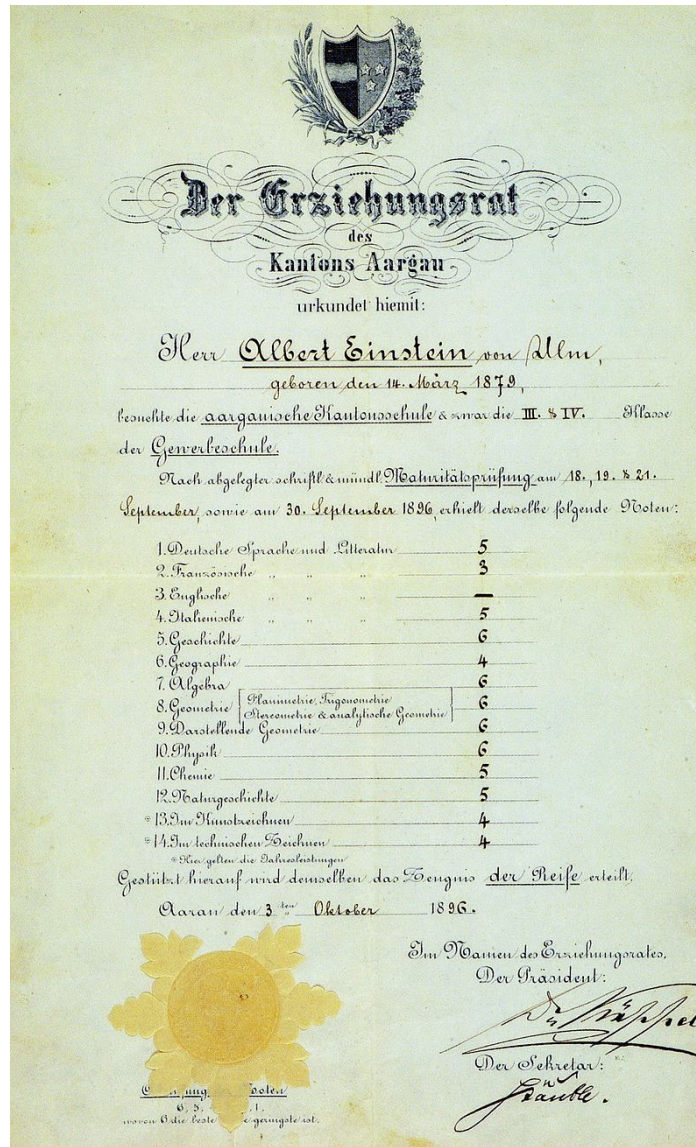 Der Erziehungsrat
des
Kantons Aargau
urkundet hiemit:
Herr Albert Einstein von Ulm,
geboren den 14. März 1879,
besuchte die aargauische Kantonsschule & zwar die III. & IV. Klasse
der Gewerbeschule.
Nach abgelegter schriftl. & mündl. Maturitätsprüfung am 18., 19. & 21.
September, sowie am 30. September 1896, erhielt derselbe folgende Noten:
1. Deutsche Sprache und Litteratur 5
2. Französische „ „ „ 3
3. Englische „ „ „ —
4. Italienische „ „ „ 5
5. Geschichte 6
6. Geographie 4
7. Algebra 6
8. Geometrie [Planimetrie, Trigonometrie
Stereometrie & analytische Geometrie] 6
9. Darstellende Geometrie 6
10. Physik 6
11. Chemie 5
12. Naturgeschichte 5
* 13. Im Kunstzeichnen 4
* 14. Im technischen Zeichnen 4
* Hier gelten die Jahresleistungen
Gestützt hierauf wird demselben das Zeugnis der Reife erteilt.
Aarau den 3ten Oktober 1896.
Im Namen des Erziehungsrates,
Der Präsident:
Der Sekretär:
Stäuble.
Noten
6, 5, 1,
wovon 6 die beste geringste ist.